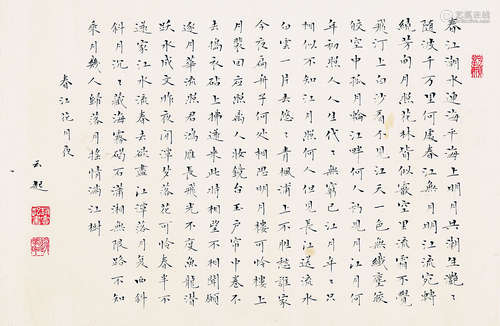 春江潮水連海平海上明月共潮生灩〻
隨波千万里何處春江無月明江流宛轉
繞芳甸月照花林皆似霰空里流霜不覺
飛汀上白沙看不見江天一色無纖塵皎
皎空中孤月輪江畔何人初見月江月何
年初照人人生代〻無窮已江月年〻只
相似不知江月照何人但見長江送流水
白雲一片去悠〻青楓浦上不勝愁誰家
今夜扁舟子何處相思明月樓可憐樓上
月裴回應照離人妝鏡台玉戶帘中卷不
去搗衣砧上拂還來此時相望不相聞願
逐月華流照君鴻雁長飛光不度魚龍潛
躍水成文昨夜閒潭夢落花可憐春半不
還家江水流春去欲盡江潭落月復西斜
斜月沉〻藏海霧碣石瀟湘無限路不知
乘月幾人歸落月搖情滿江樹
春江花月夜